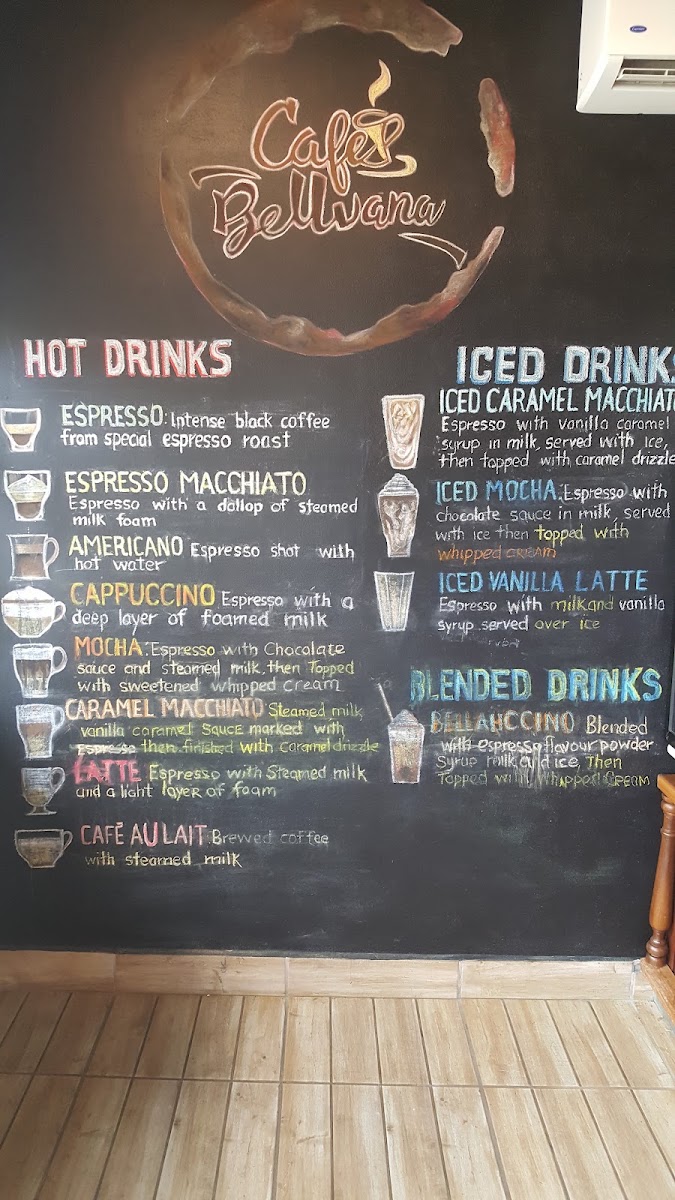 Café
Bellvana
HOT DRINKS
ESPRESSO: Intense black coffee
from special espresso roast
ESPRESSO MACCHIATO
Espresso with a dollop of steamed
milk foam
AMERICANO Espresso shot with
hot water
CAPPUCCINO Espresso with a
deep layer of foamed milk
MOCHA: Espresso with Chocolate
sauce and steamed milk, then Topped
with sweetened whipped cream
CARAMEL MACCHIATO Steamed milk
vanilla caramel Sauce marked with
espresso then finished with Carameldrizzle
LATTE Espresso with Steamed milk
and a light layer of foam
CAFÉ AU LAIT Brewed coffee
with steamed milk
ICED DRINKS
ICED CARAMEL MACCHIATO
Espresso with vanilla caramel
syrup in milk, served with ice,
then topped with caramel drizzle
ICED MOCHA: Espresso with
chocolate sauce in milk, served
with ice then topped with
whipped CREAM
ICED VANILLA LATTE
Espresso with milk and vanilla
syrup served over ice
BLENDED DRINKS
BELLAHCCINO Blended
with espresso flavour powder
Syrup milk and ice, Then
Topped with WHAPPED CREAM